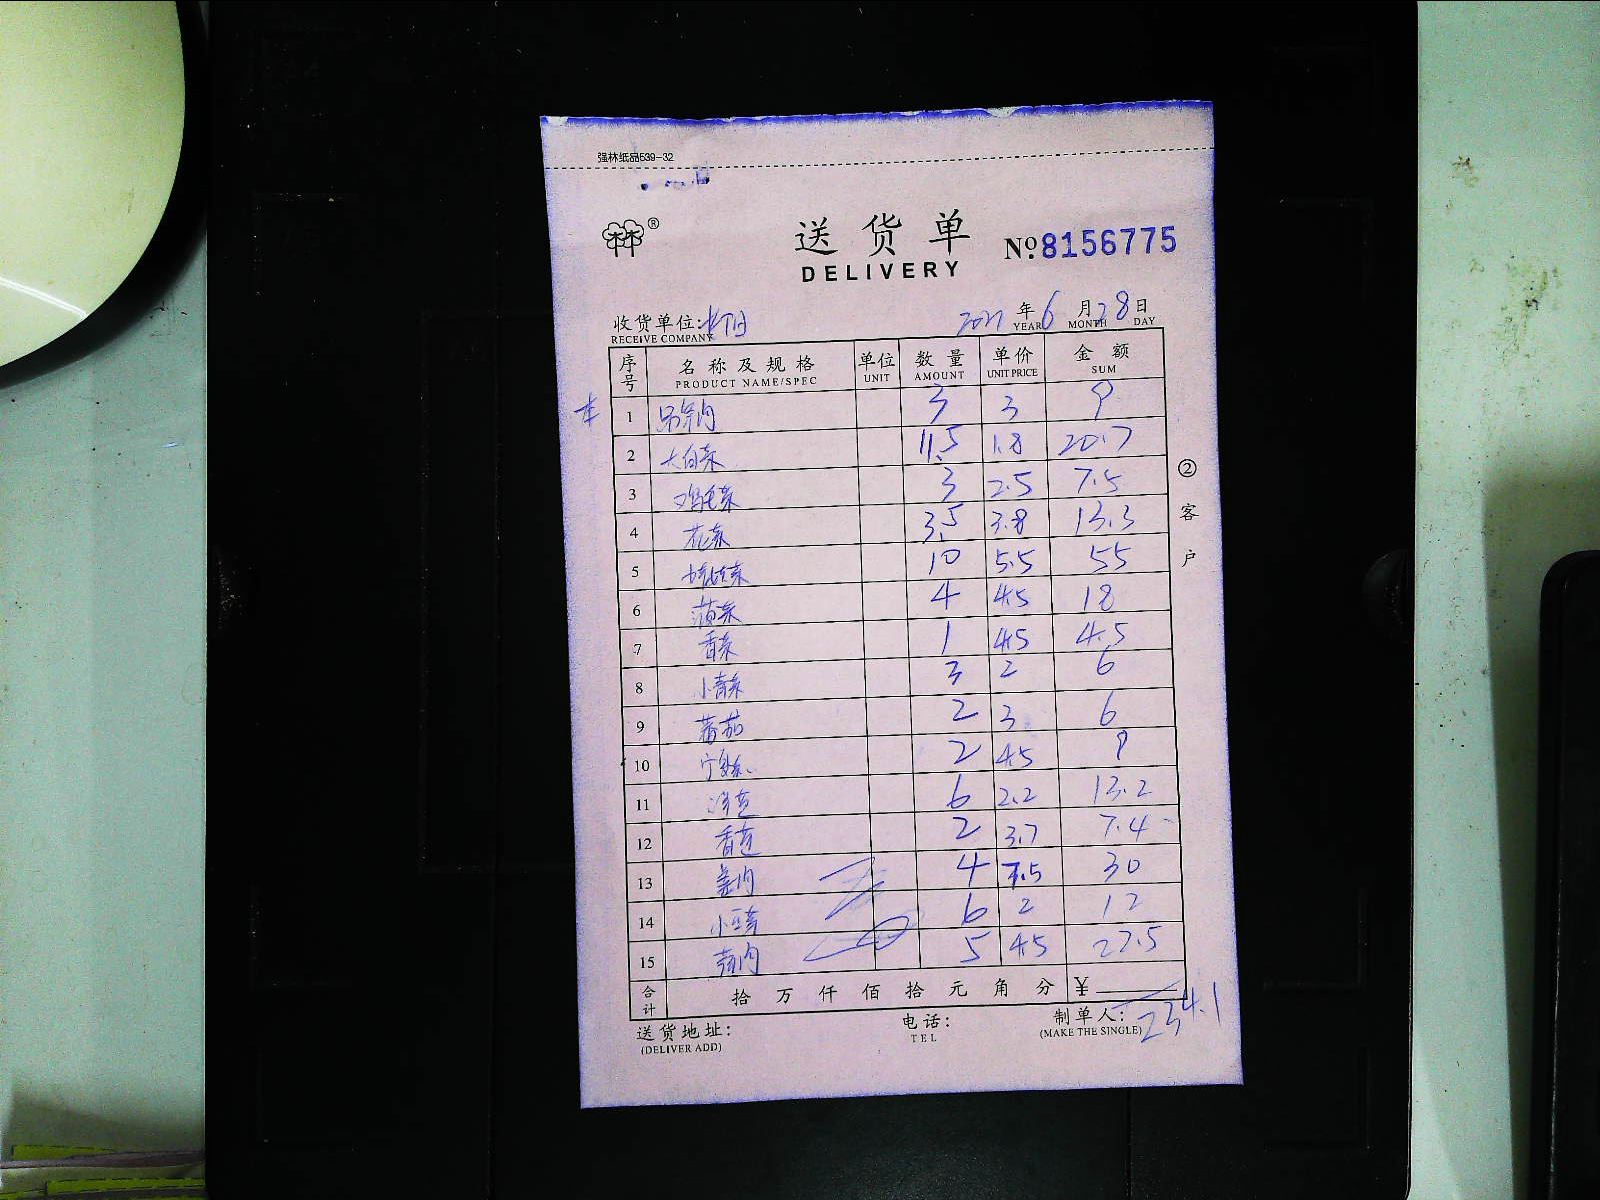 强林纸品539-32
送货单
DELIVERY
№8156775
收货单位:
RECEIVE COMPANY
2021年6月28日
YEAR MONTH DAY
序号 名称及规格 单位 数量 单价 金额
PRODUCT NAME/SPEC UNIT AMOUNT UNIT PRICE SUM
1 3 3 9
2 大白菜 11.5 1.8 20.7
3 鸡毛菜 3 2.5 7.5
4 花菜 3.5 3.8 13.3
5 10 5.5 55
6 菠菜 4 4.5 18
7 香菜 1 4.5 4.5
8 小青菜 3 2 6
9 蕃茄 2 3 6
10 2 4.5 9
11 洋芋 6 2.2 13.2
12 2 3.7 7.4
13 姜肉 4 7.5 30
14 6 2 12
15 5 4.5 22.5
合计 拾 万 仟 佰 拾 元 角 分 ¥
234.1
送货地址: 电话: 制单人:
(DELIVER ADD) TEL (MAKE THE SINGLE)
②客户